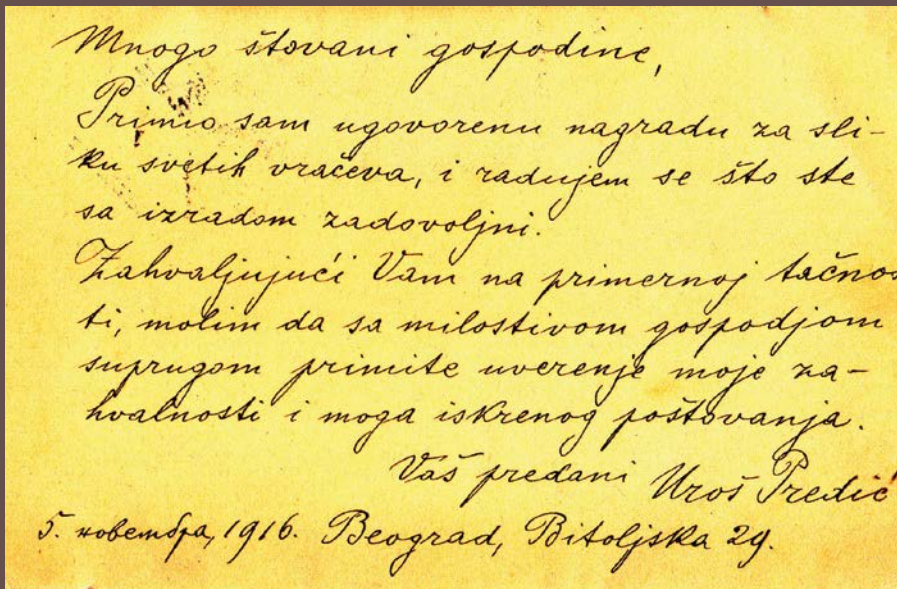 Mnogo štovani gospodine,
Primio sam ugovorenu nagradu za sli-
ku svetih vračeva, i radujem se što ste
sa izradom zadovoljni.
Zahvaljujući Vam na primernoj tačnos
ti, molim da sa milostivom gospodjom
suprugom primite uverenje moje za-
hvalnosti i moga iskrenog poštovanja.
Vaš predani Uroš Predić
5. новембра, 1916. Beograd, Bitoljska 29.